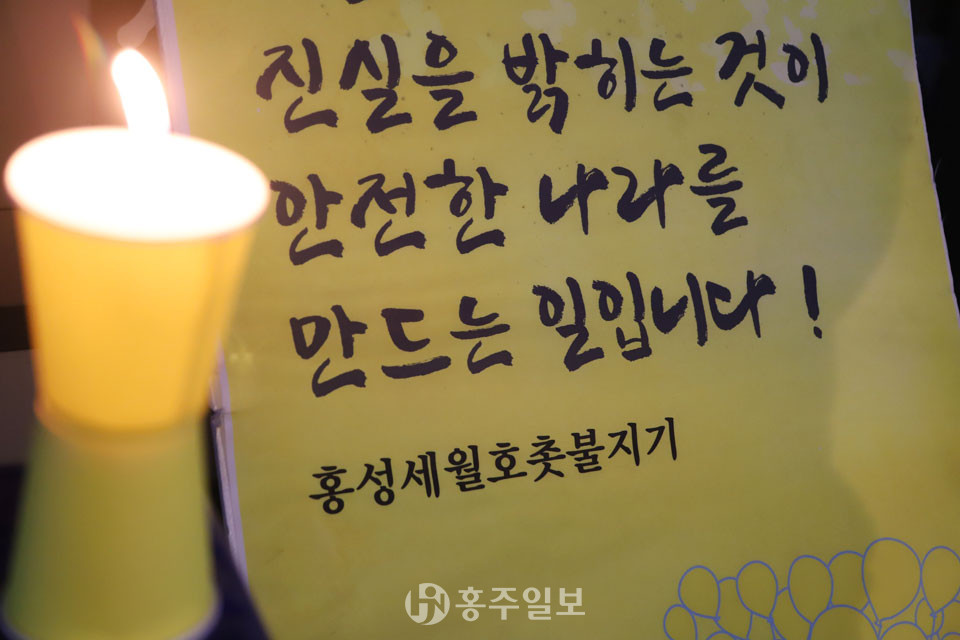 진실을 밝히는 것이
안전한 나라를
만드는 일입니다!
홍성세월호촛불지기
홍주일보